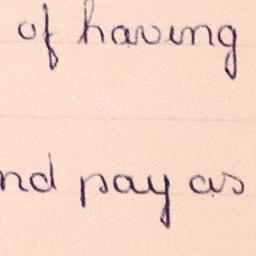 of having
nd pay as